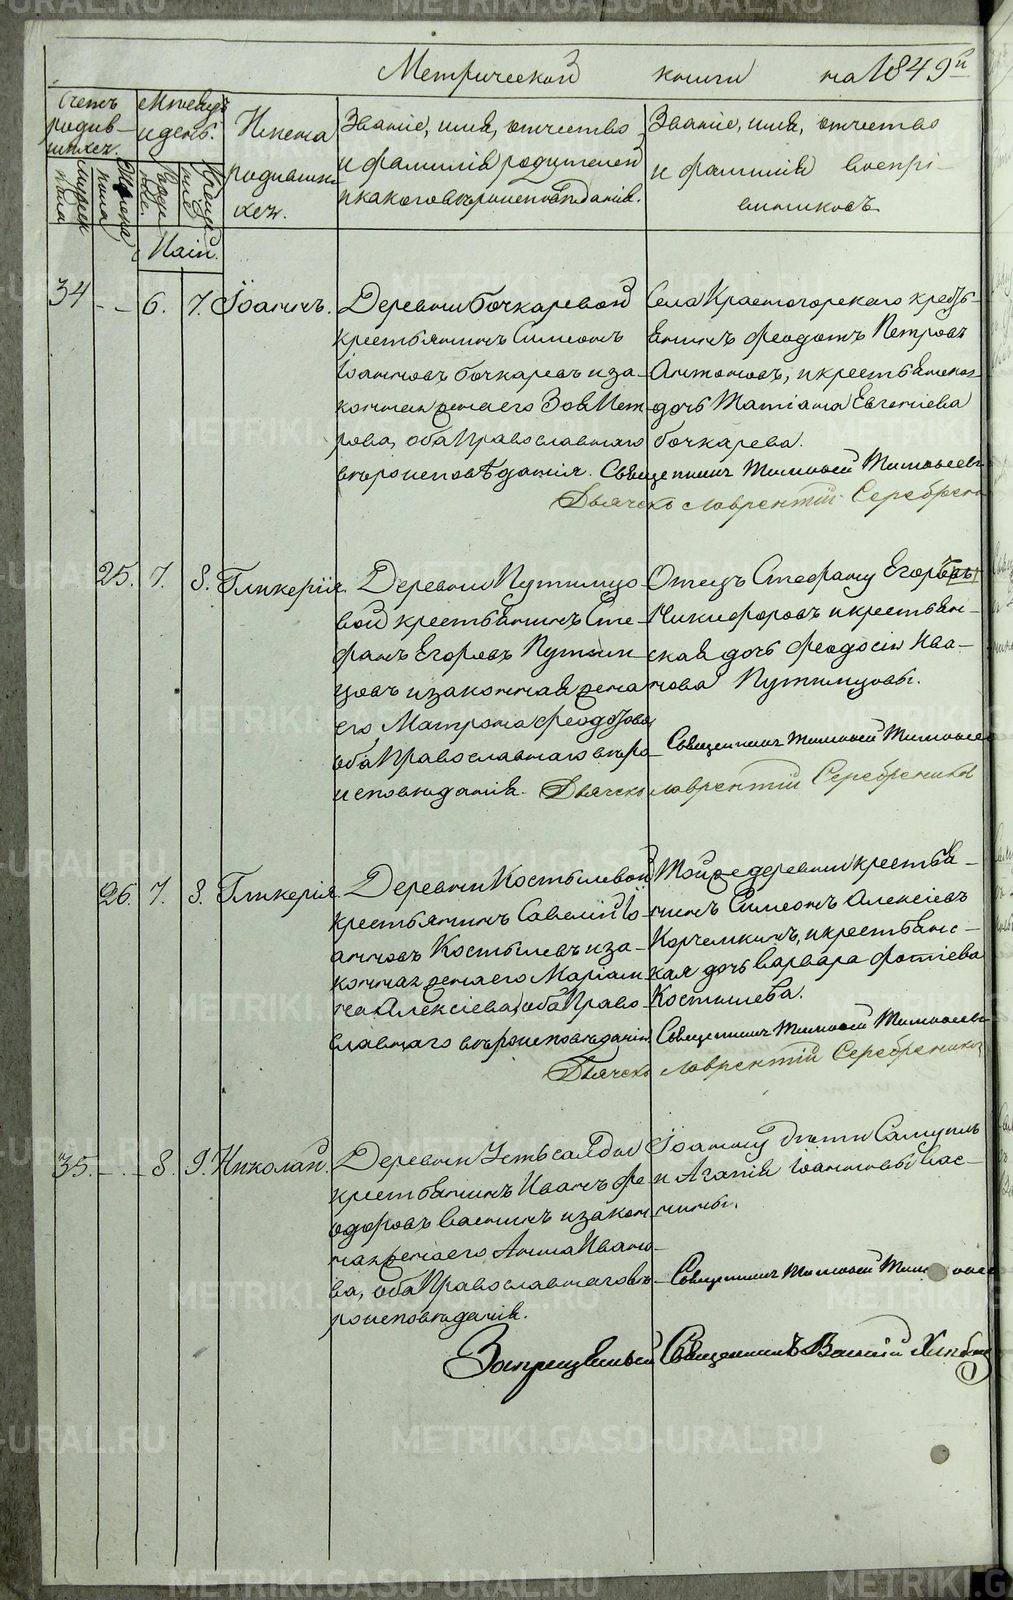 Метрической книги на 1849й
Счетъ родив-шихся.
Мужеска пола
Женска пола
Мѣсяцъ и день.
Рожденія
Крещенія
Имена родивших-ся.
Званіе, имя, отчество
и фамилія родителей
и какого вѣроисповѣданія.
Званіе, имя, отчество
и фамилія воспрі-
емниковъ
Маій.
34 - - 6. 7. Іоаннъ.
Деревни Бочкаревой
крестьянинъ Симеонъ
Іоанновъ Бочкаревъ и за-
конная жена его Зоя Пет-
рова, оба Православнаго
вѣроисповѣданія.
Села Красногорскаго кресть-
янинъ Феодотъ Петровъ
Антоновъ, и крестьянская
дочь Татіана Евгеніева
Бочкарева.
Священникъ Тимофей Тимофеевъ
Дьячекъ Лаврентій Серебрени
25. 7. 8. Гликерія.
Деревни Путимцо-
вой крестьянинъ Сте-
фанъ Егоровъ Путим-
цовъ и законная жена
его Матрона Феодотова
оба Православнаго вѣро-
исповѣданія.
Отецъ Стефану Егоровъ
Никифоровъ и крестьян-
ская дочь Феодосія Ива-
нова Путимцовы.
Священникъ Тимофей Тимофеев
Дьячекъ Лаврентій Серебреников
26. 7. 8. Гликерія.
Деревни Костылевой
крестьянинъ Савелій Іо-
анновъ Костылевъ и за-
конная жена его Маріам-
на Алексіева, оба Право-
славнаго вѣроисповѣданія.
Той же деревни крестья-
нинъ Симеонъ Алексіевъ
Корчемкинъ, и крестьянс-
кая дочь Варвара Фотіева
Костылева.
Священникъ Тимофей Тимофеевъ
Дьячекъ Лаврентій Серебреников
35. - - 8. 9. Николай.
Деревни Устьсалды
крестьянинъ Иванъ Фе-
одоровъ Васнинъ и закон-
ная жена его Анна Ивано-
ва, оба Православнаго вѣ-
роисповѣданія.
Іоанну дѣти Самуилъ
и Агапія Іоанновы Вас-
нины.
Священникъ Тимофей Тимофеев
Запрещенный Священникъ Василій
METRIKI.GASO-URAL.RU